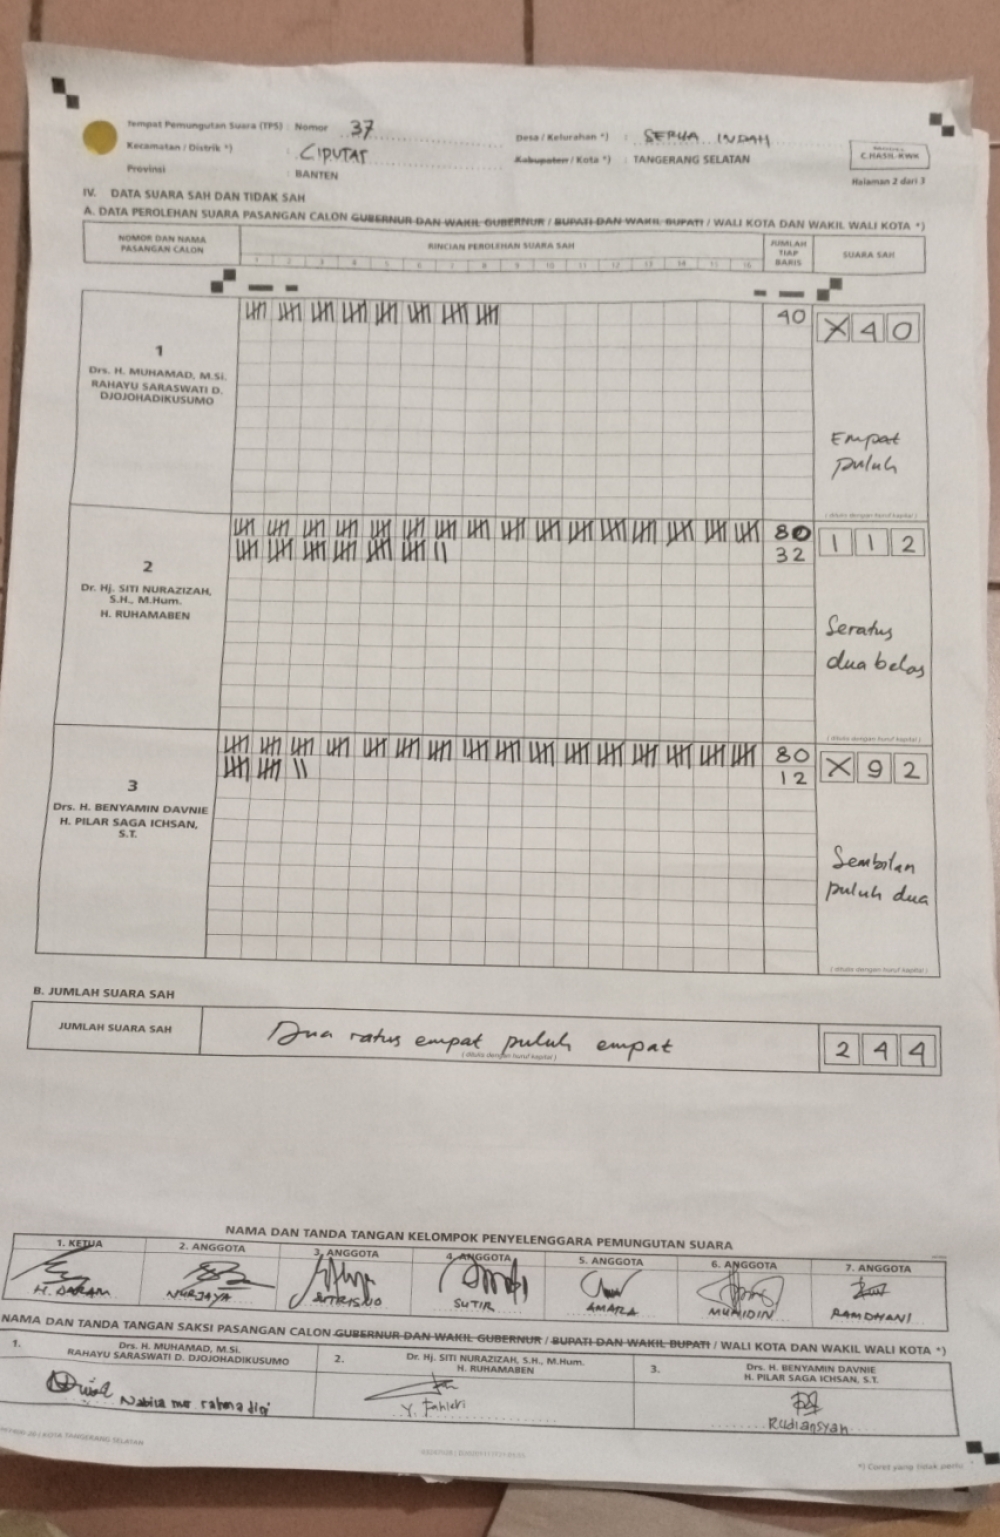 Tempat Pemungutan Suara (TPS) : Nomor 37
Desa / Kelurahan *) : SERUA INDAH
Kecamatan / Distrik *) : CIPUTAT
Kabupaten / Kota *) : TANGERANG SELATAN
Provinsi : BANTEN
C.HASIL-KWK
Halaman 2 dari 3
IV. DATA SUARA SAH DAN TIDAK SAH
A. DATA PEROLEHAN SUARA PASANGAN CALON GUBERNUR DAN WAKIL GUBERNUR / BUPATI DAN WAKIL BUPATI / WALI KOTA DAN WAKIL WALI KOTA *)
NOMOR DAN NAMA PASANGAN CALON
RINCIAN PEROLEHAN SUARA SAH
JUMLAH TIAP BARIS
SUARA SAH
1 2 3 4 5 6 7 8 9 10 11 12 13 14 15 16
40
X 4 0
1
Drs. H. MUHAMAD, M.Si.
RAHAYU SARASWATI D.
DJOJOHADIKUSUMO
Empat
puluh
(ditulis dengan huruf kapital)
80
32
1 1 2
2
Dr. Hj. SITI NURAZIZAH,
S.H., M.Hum.
H. RUHAMABEN
Seratus
dua belas
(ditulis dengan huruf kapital)
80
12
X 9 2
3
Drs. H. BENYAMIN DAVNIE
H. PILAR SAGA ICHSAN,
S.T.
Sembilan
puluh dua
(ditulis dengan huruf kapital)
B. JUMLAH SUARA SAH
JUMLAH SUARA SAH
Dua ratus empat puluh empat
(ditulis dengan huruf kapital)
2 4 4
NAMA DAN TANDA TANGAN KELOMPOK PENYELENGGARA PEMUNGUTAN SUARA
1. KETUA
2. ANGGOTA
3. ANGGOTA
4. ANGGOTA
5. ANGGOTA
6. ANGGOTA
7. ANGGOTA
NURJAYA
SUTRISNO
SUTIR
AMARA
MUHIDIN
RAMDHANI
NAMA DAN TANDA TANGAN SAKSI PASANGAN CALON GUBERNUR DAN WAKIL GUBERNUR / BUPATI DAN WAKIL BUPATI / WALI KOTA DAN WAKIL WALI KOTA *)
1. Drs. H. MUHAMAD, M.Si.
RAHAYU SARASWATI D. DJOJOHADIKUSUMO
2. Dr. Hj. SITI NURAZIZAH, S.H., M.Hum.
H. RUHAMABEN
3. Drs. H. BENYAMIN DAVNIE
H. PILAR SAGA ICHSAN, S.T.
Rudiansyah
KOTA TANGERANG SELATAN
*) Coret yang tidak perlu